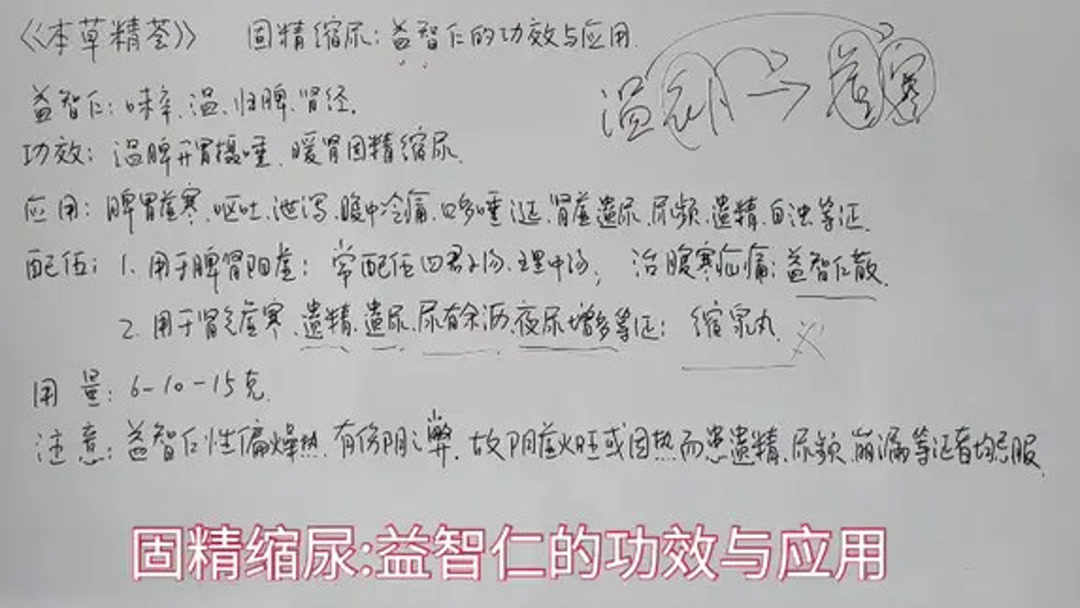 《本草精荟》 固精缩尿:益智仁的功效与应用.
温 → 虚寒
益智仁:味辛、温、归脾、肾经.
功效:温脾开胃摄唾、暖肾固精缩尿.
应用:脾胃虚寒、呕吐、泄泻、腹中冷痛、口多唾涎、肾虚遗尿、尿频、遗精、白浊等证.
配伍:1.用于脾肾阳虚:常配伍四君子汤、理中汤; 治腹寒疝痛:益智仁散.
2.用于肾气虚寒、遗精、遗尿、尿有余沥、夜尿增多等证:缩泉丸
用量:6-10-15克.
注意:益智仁性偏燥热、有伤阴之弊、故阴虚火旺或因热而患遗精、尿频、崩漏等证者均忌服
固精缩尿:益智仁的功效与应用